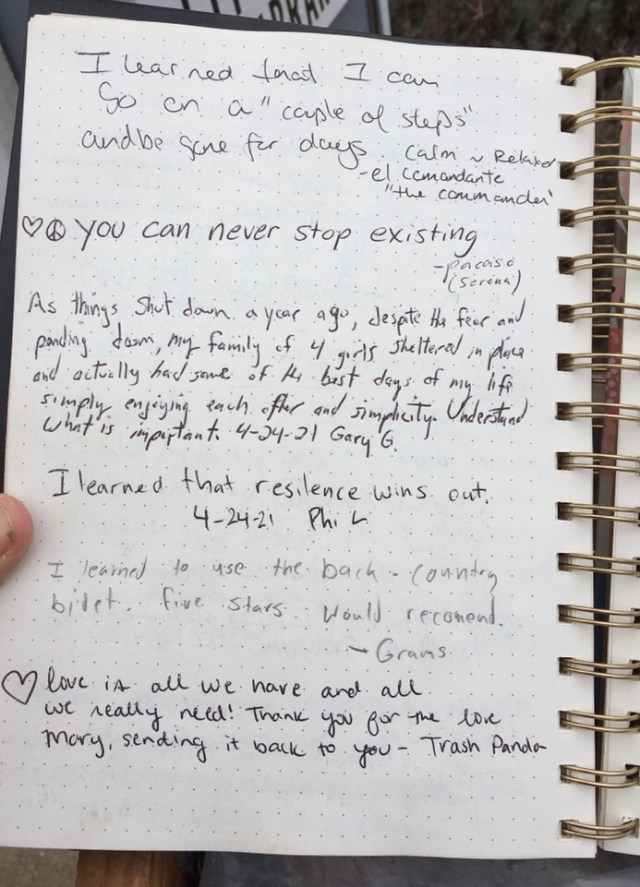 I learned that I can
Go on a "couple of steps"
and be gone for days. Calm ~ Relaxed
-el comandante
"the commander"
♡☮ you can never stop existing
-pacaiso
(Serena)
As things shut down a year ago, despite the fear and
pending doom, my family of 4 girls sheltered in place
and actually had some of the best days of my life
simply enjoying each other and simplicity. Understand
what is important. 4-24-21 Gary G.
I learned that resilence wins out.
4-24-21 Phil
I learned to use the back-country
bidet. five stars. Would recomend.
- Grams
♡ love is all we have and all
we really need! Thank you for the love
Mary, sending it back to you - Trash Panda